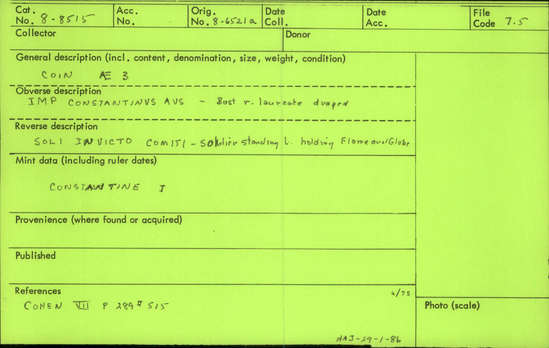 Cat. No. 8-8515 Acc. No. Orig. No. 8-6521a Date Coll. Date Acc. File Code 7.5
Collector Donor
General description (incl. content, denomination, size, weight, condition)
COIN Æ 3
Obverse description
IMP CONSTANTINVS AVS - Bust r. laureate draped
Reverse description
SOLI INVICTO COMITI - SOl standing l. holding Globe
Mint data (including ruler dates)
CONSTANTINE I
Provenience (where found or acquired)
Published
References 6/75
COHEN VII P 289 # 515
Photo (scale)
HAJ-29-1-86